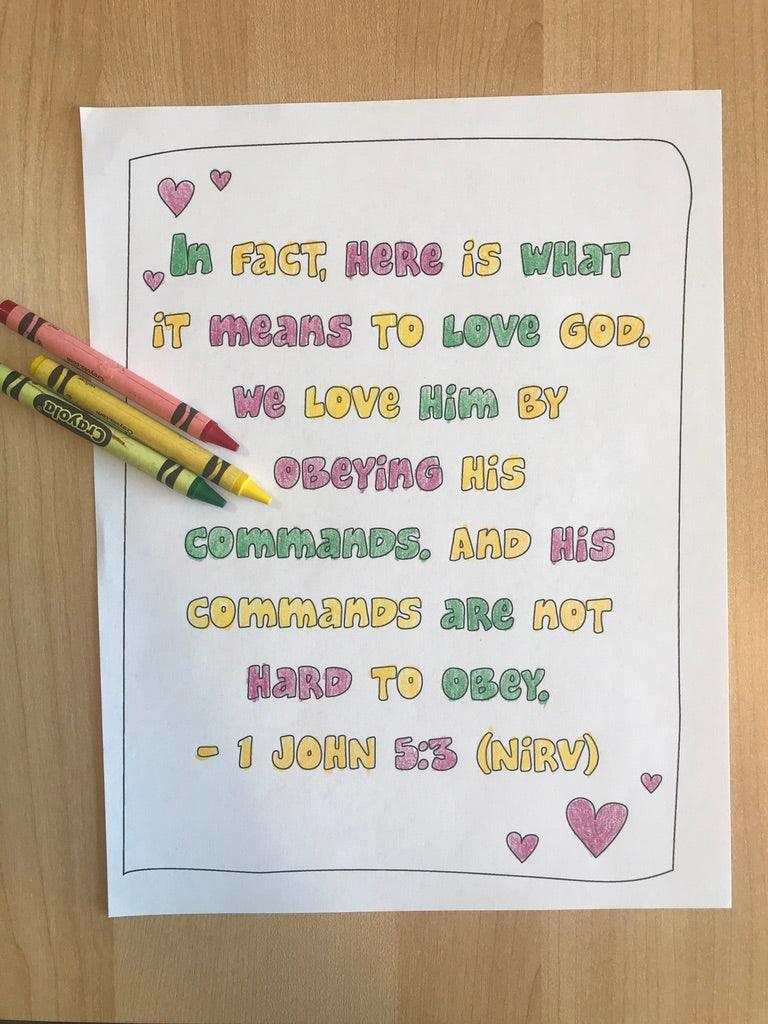 In FACT, HERE is WHAT
iT means TO LOVE GOD.
We LOVE Him BY
OBEYING His
COMMANDS. AND His
COMMANDS aRE NOT
HARD TO OBEY.
- 1 JOHN 5:3 (NiRV)
Crayola